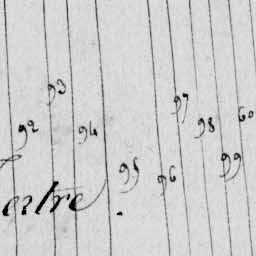 93
97
60
92
94
98
95
96
99